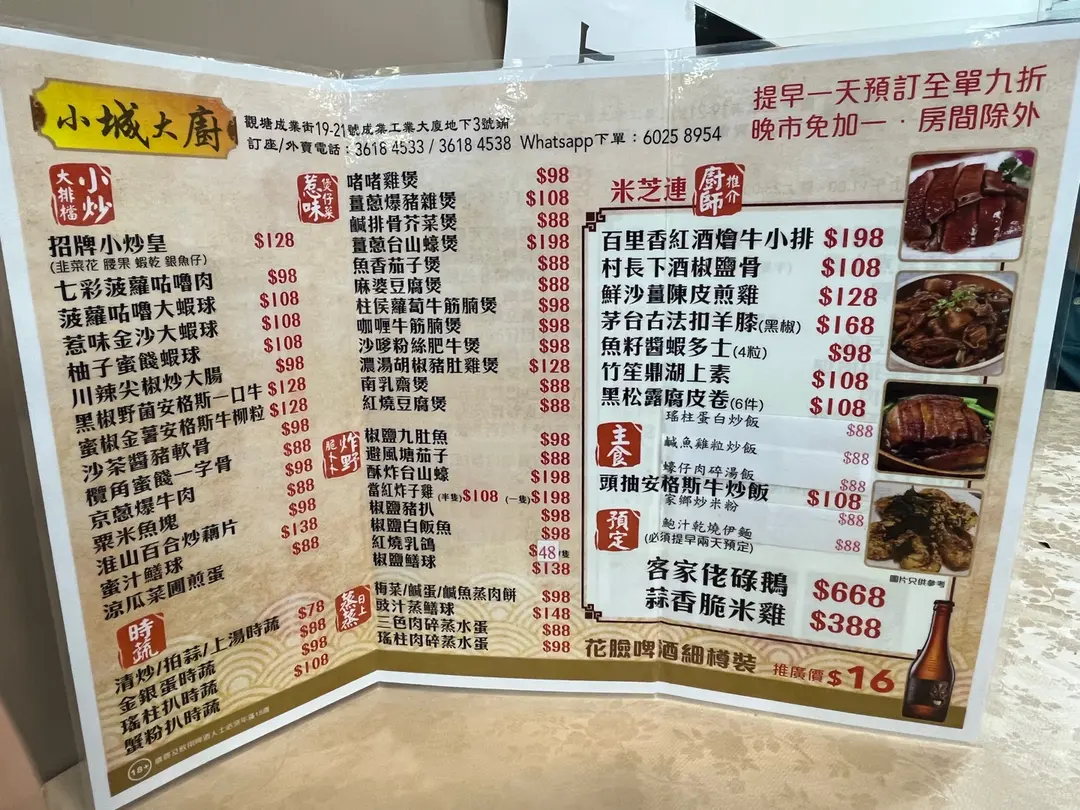 小城大廚
觀塘成業街19-21號成業工業大廈地下3號舖
訂座/外賣電話：3618 4533 / 3618 4538 Whatsapp下單：6025 8954
提早一天預訂全單九折
晚市免加一．房間除外
大排檔 小炒
招牌小炒皇 $128
(韭菜花 腰果 蝦乾 銀魚仔)
七彩菠蘿咕嚕肉 $98
菠蘿咕嚕大蝦球 $108
惹味金沙大蝦球 $108
柚子蜜餞蝦球 $108
川辣尖椒炒大腸 $98
黑椒野菌安格斯一口牛 $128
蜜椒金薯安格斯牛柳粒 $128
沙茶醬豬軟骨 $98
欖角蜜餞一字骨 $88
京蔥爆牛肉 $98
粟米魚塊 $88
淮山百合炒藕片 $98
蜜汁鱔球 $138
涼瓜菜圃煎蛋 $88
時蔬
清炒/拍蒜/上湯時蔬 $78
金銀蛋時蔬 $88
瑤柱扒時蔬 $98
蟹粉扒時蔬 $108
18+
惹味 煲仔菜
啫啫雞煲 $98
薑蔥爆豬雜煲 $108
鹹排骨芥菜煲 $88
薑蔥台山蠔煲 $198
魚香茄子煲 $88
麻婆豆腐煲 $88
柱侯蘿蔔牛筋腩煲 $98
咖喱牛筋腩煲 $98
沙嗲粉絲肥牛煲 $98
濃湯胡椒豬肚雞煲 $128
南乳齋煲 $88
紅燒豆腐煲 $88
炸野 脆卜卜
椒鹽九肚魚 $98
避風塘茄子 $88
酥炸台山蠔 $198
當紅炸子雞 (半隻)$108 (一隻)$198
椒鹽豬扒 $98
椒鹽白飯魚 $98
紅燒乳鴿 $48/隻
椒鹽鱔球 $138
蒸蒸日上
梅菜/鹹蛋/鹹魚蒸肉餅 $98
豉汁蒸鱔球 $148
三色肉碎蒸水蛋 $88
瑤柱肉碎蒸水蛋 $98
米芝連 廚師 推介
百里香紅酒燴牛小排 $198
村長下酒椒鹽骨 $108
鮮沙薑陳皮煎雞 $128
茅台古法扣羊膝(黑椒) $168
魚籽醬蝦多士(4粒) $98
竹笙鼎湖上素 $108
黑松露腐皮卷(6件) $108
主食
瑤柱蛋白炒飯 $88
鹹魚雞粒炒飯 $88
蠔仔肉碎湯飯 $88
頭抽安格斯牛炒飯 $108
家鄉炒米粉 $88
鮑汁乾燒伊麵 $88
預定
(必須提早兩天預定)
客家佬碌鵝 $668
蒜香脆米雞 $388
圖片只供參考
花臉啤酒細樽裝 推廣價$16